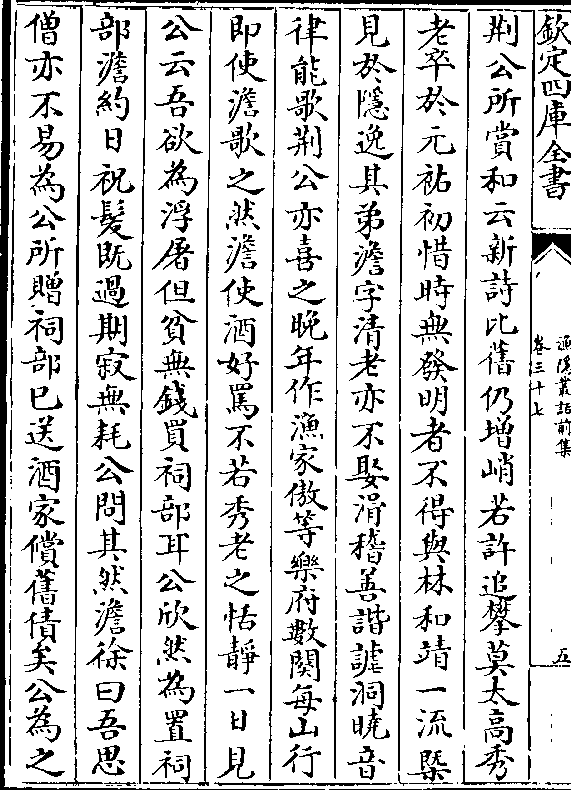 欽定四庫全書
漁隱叢話前集
卷三十七
五
荆公所賞和云新詩比舊仍增峭若許追攀莫太高秀
老卒於元祐初惜時無發明者不得與林和靖一流槩
見於隱逸其弟澹字清老亦不娶滑稽善諧謔洞曉音
律能歌荆公亦喜之晚年作漁家傲等樂府數闋每山行
即使澹歌之然澹使酒好罵不若秀老之恬靜一日見
公云吾欲為浮屠但貧無錢買祠部耳公欣然為置祠
部澹約日祝髮既過期寂無耗公問其然澹徐曰吾思
僧亦不易為公所贈祠部已送酒家償舊債矣公為之